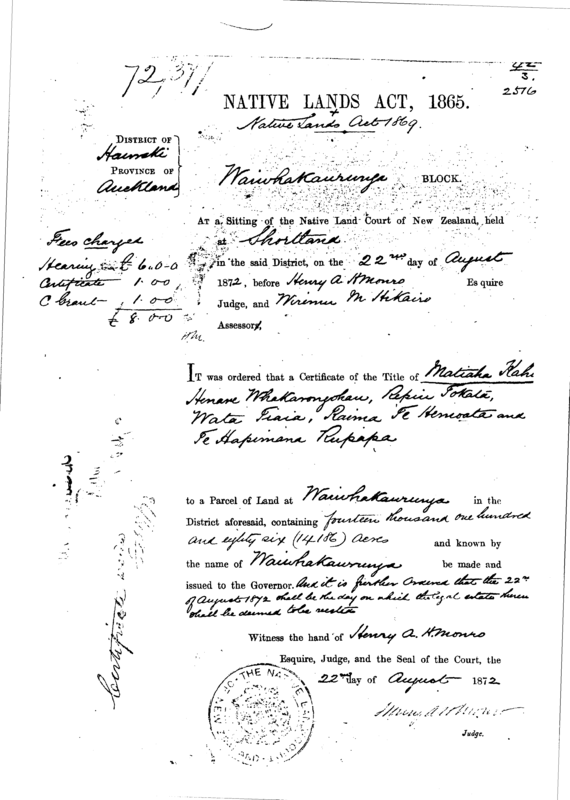 72,371
42
3.
2516
NATIVE LANDS ACT, 1865.
+
Native Lands Act 1869.
DISTRICT OF
Hauraki
PROVINCE OF
Auckland
Waiwhakaurunga BLOCK.
AT a Sitting of the Native Land Court of New Zealand, held
at Shortland
in the said District, on the 22nd day of August
1872, before Henry A H Monro Esquire
Judge, and Wiremu M Hikairo
Assessor.
Fees charged
Hearing £ 6.0-0
Certificate 1.00
C Grant 1.00
£ 8.00
IT was ordered that a Certificate of the Title of Matiaha Kahi
Henare Whakarongohau, Repiu Tokata,
Wata Tiaia, Raima Te Hemoata and
Te Hapimana Rupapa
to a Parcel of Land at Waiwhakaurunga in the
District aforesaid, containing fourteen thousand one hundred
and eighty six (14186) Acres and known by
the name of Waiwhakaurunga be made and
issued to the Governor. And it is further Ordered that the 22nd
of August 1872 shall be the day on which the legal estate herein
shall be deemed to be vested
Witness the hand of Henry A. H. Monro
Esquire, Judge, and the Seal of the Court, the
22nd day of August 1872
Henry A H Monro
Judge.
Certificate
THE NATIVE LAND COURT OF NEW ZEALAND